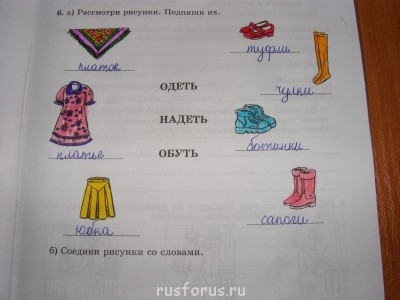 6. а) Рассмотри рисунки. Подпиши их.
платок
туфли
ОДЕТЬ
чулки
НАДЕТЬ
ботинки
платье
ОБУТЬ
юбка
сапоги
б) Соедини рисунки со словами.
rusforus.ru